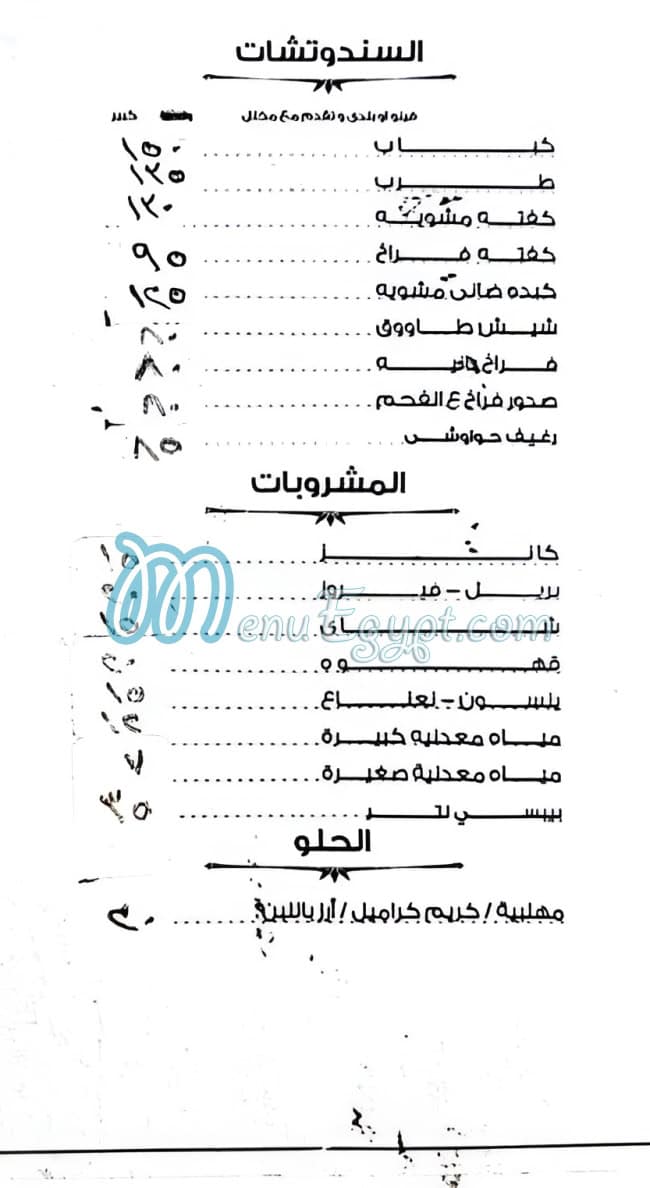 السندوتشات
فينو او بلدى و تقدم مع مخلل كبير
كباب ١٥٠
طرب ١٢٥
كفته مشويه ١٢٠
كفته فراخ ٩٥
كبده ضانى مشويه ١٢٥
شيش طاووق
فراخ ٨٠
صدور فراخ ع الفحم
رغيف حواوشى ٨٥
المشروبات
كانز ١٥
بريل - فيروز
شاى ١٥
قهوه ٢٠
ينسون - نعناع ١٥
مياه معدنيه كبيرة
مياه معدنية صغيرة
بيبسي لتر ٣٥
الحلو
مهلبية / كريم كراميل / أرز باللبن ٢٠
MenuEgypt.com